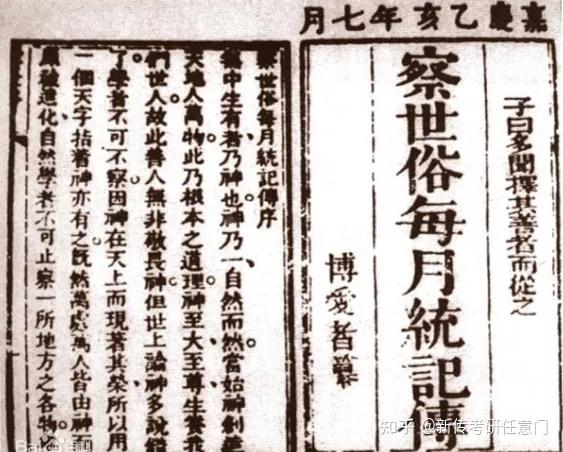 嘉慶乙亥年七月
子曰多聞擇其善者而從之
察世俗每月統記傳
博愛者纂
察世俗每月統記傳序
無中生有者乃神也神乃一自然而然當始神創造
天地人萬物此乃根本之道理神至大至尊生養我
們世人故此善人無非敬畏神但世上論神多說錯
了學者不可不察因神在天上而現著其榮所以用
一個天字指著神亦有之既然萬處萬人皆由神而
原被造化自然學者不可止察一所地方之各物
知乎 @新传考研任意门